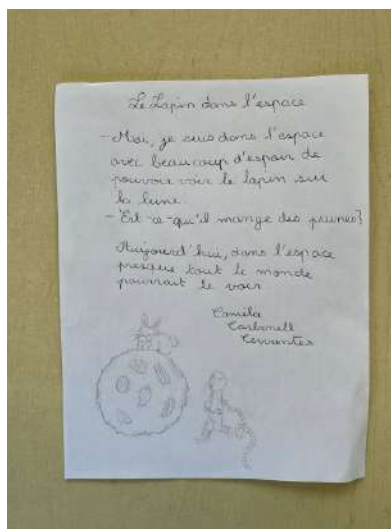 Le Lapin dans l'espace
- Moi, je suis dans l'espace
avec beaucoup d'espoir de
pouvoir voir le lapin sur
la lune.
- Est-ce-qu'il mange des prunes?
Aujourd'hui, dans l'espace
presque tout le monde
pourrait le voir
Camila
Carbonell
Cervantes